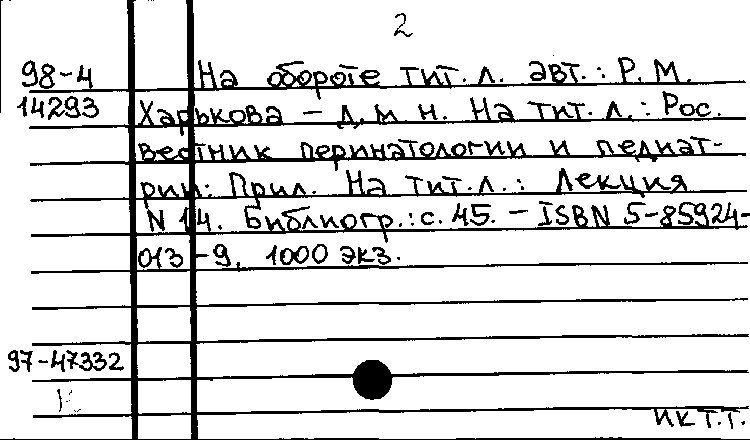 2
98-4 На обороте тит. л. авт.: Р.М.
14293 Харькова – д.м.н. На тит. л.: Рос.
вестник перинатологии и педиат-
рии: Прил. На тит. л.: Лекция
N 14. Библиогр.: с. 45. – ISBN 5-85924-
013-9, 1000 экз.
97-47332
ИК Т.Т.